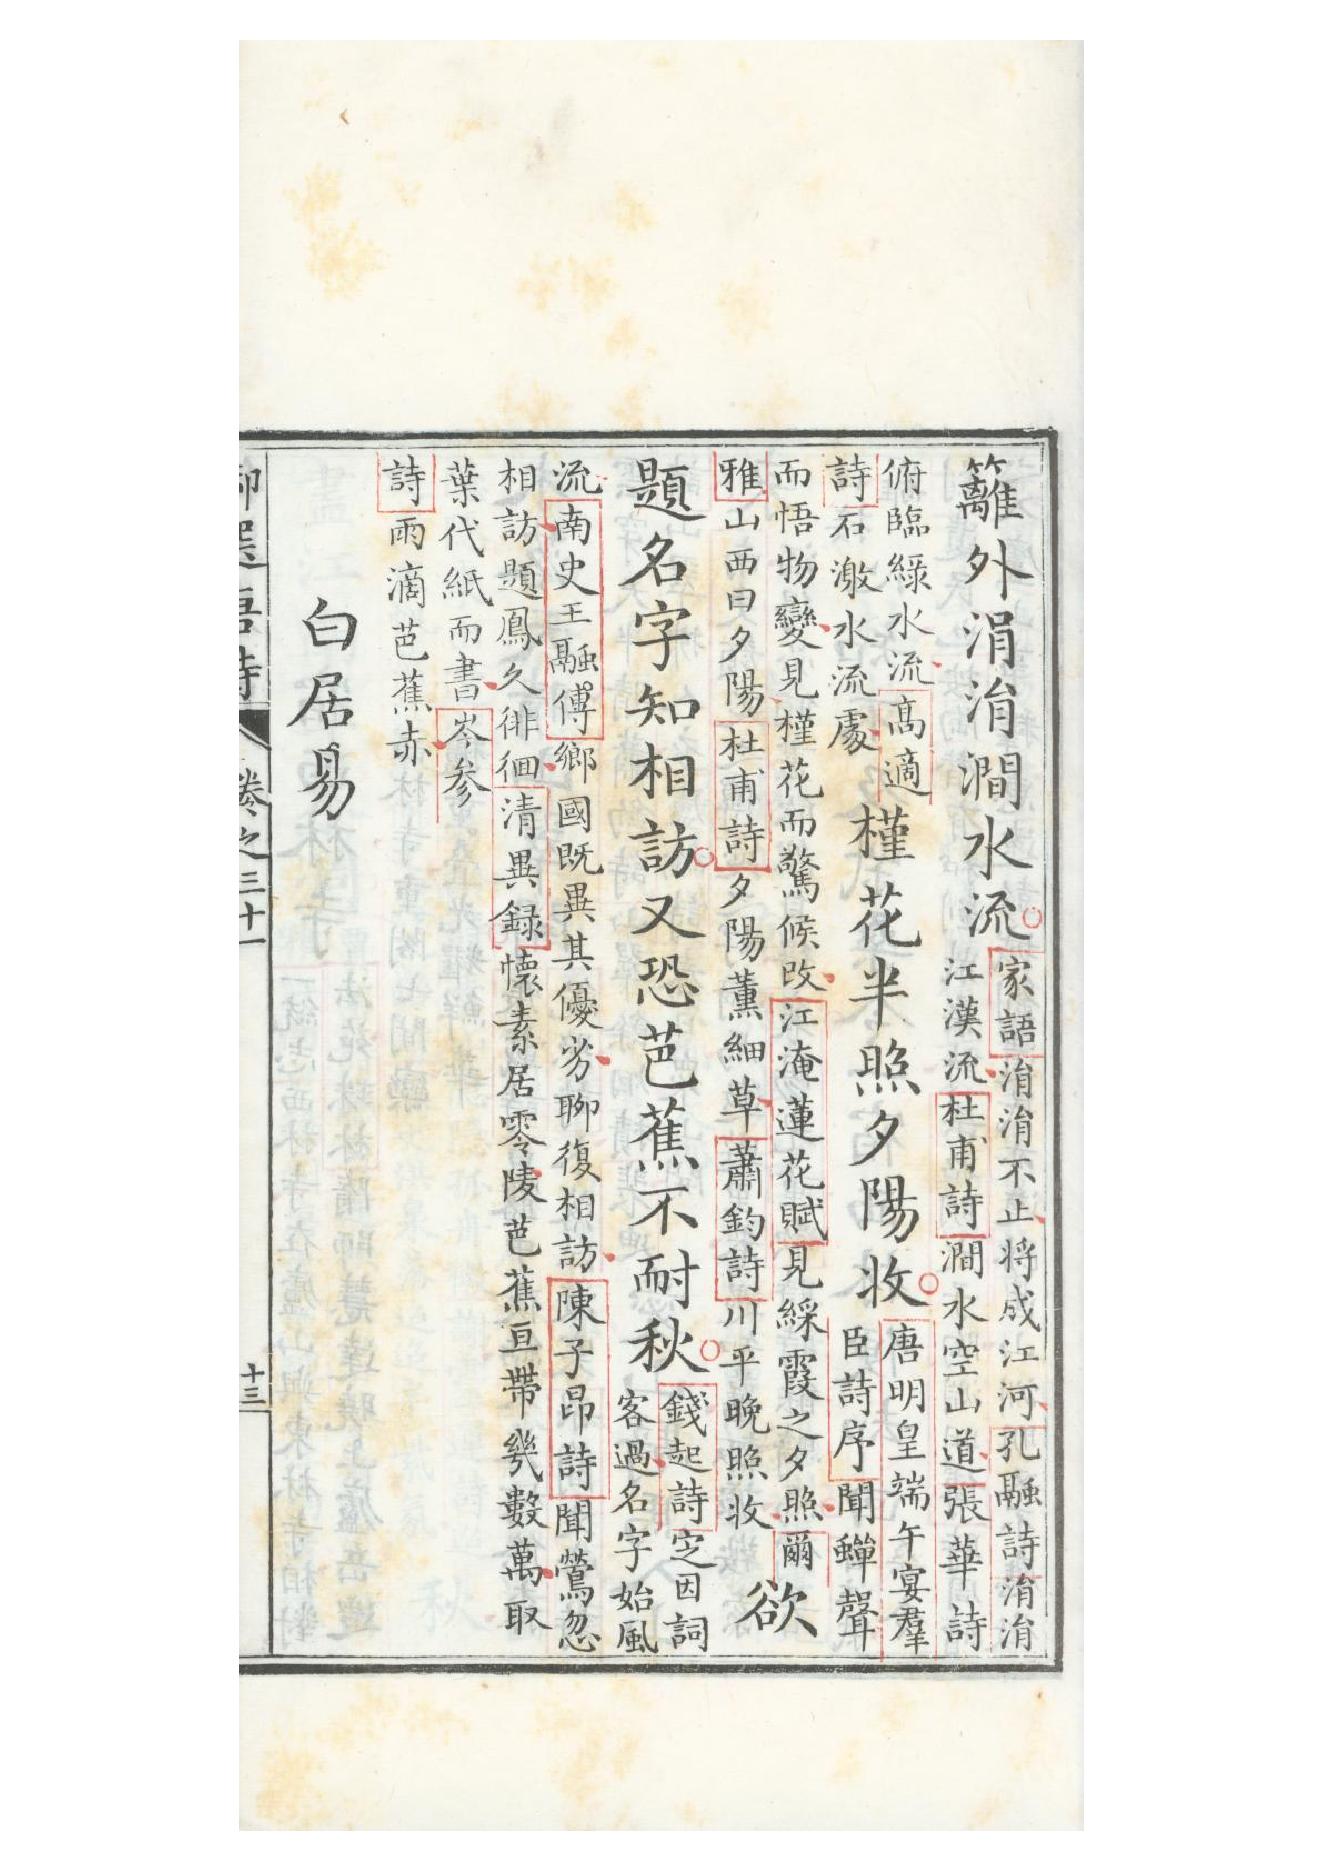 籬外涓涓澗水流
家語涓涓不止將成江河孔融詩涓涓
江漢流杜甫詩澗水空山道張華詩
俯臨綠水流高適
詩石激水流處
槿花半照夕陽收
唐明皇端午宴羣
臣詩序聞蟬聲
而悟物變見槿花而驚候改江淹蓮花賦見綵霞之夕照爾
雅山西曰夕陽杜甫詩夕陽薰細草蕭鈞詩川平晚照收
欲
題名字知相訪又恐芭蕉不耐秋
錢起詩定因詞
客過名字始風
流南史王融傳鄉國既異其優劣聊復相訪陳子昂詩聞鶯忽
相訪題鳳久徘徊清異録懷素居零陵芭蕉亘帶幾數萬取
葉代紙而書岑参
詩雨滴芭蕉赤
白居易
御選唐詩 卷之三十一 十三